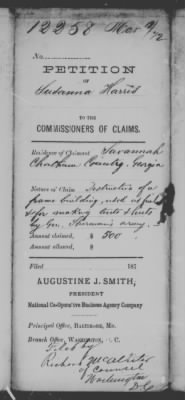 12258 Mar 9/72
No.
PETITION
OF
Susanna Harris
TO THE
COMMISSIONERS OF CLAIMS.
Residence of Claimant Savannah
Chatham County, Georgia
Nature of Claim Destruction of a
frame building, used as fuel
& for making tents & huts
by Gen. Sherman's army.
Amount claimed, $ 500
Amount allowed, $
Filed 187
AUGUSTINE J. SMITH,
PRESIDENT
National Co-Operative Business Agency Company
Principal Office, BALTIMORE, MD.
Branch Office, WASHINGTON, D. C.
Filed by
Richard McAllister
of Counsel
Washington
D.C.